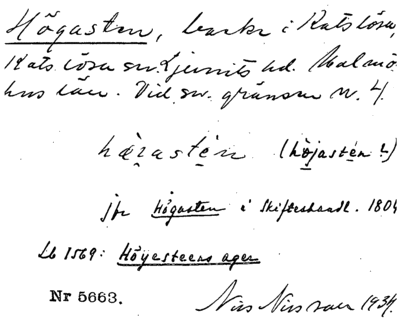 Högasten, backe i Katslösa,
Katslösa sn. Ljunits hd. Malmö
hus län. Vid sv. gränsen N. 4.
hœ̱rastē̱n (hö̱jastēn ?)
jfr Högasten i Skifteshandl. 1804
Lb 1569: Höyesteens ager
Nr 5663.
Nils Nilsson 1934.